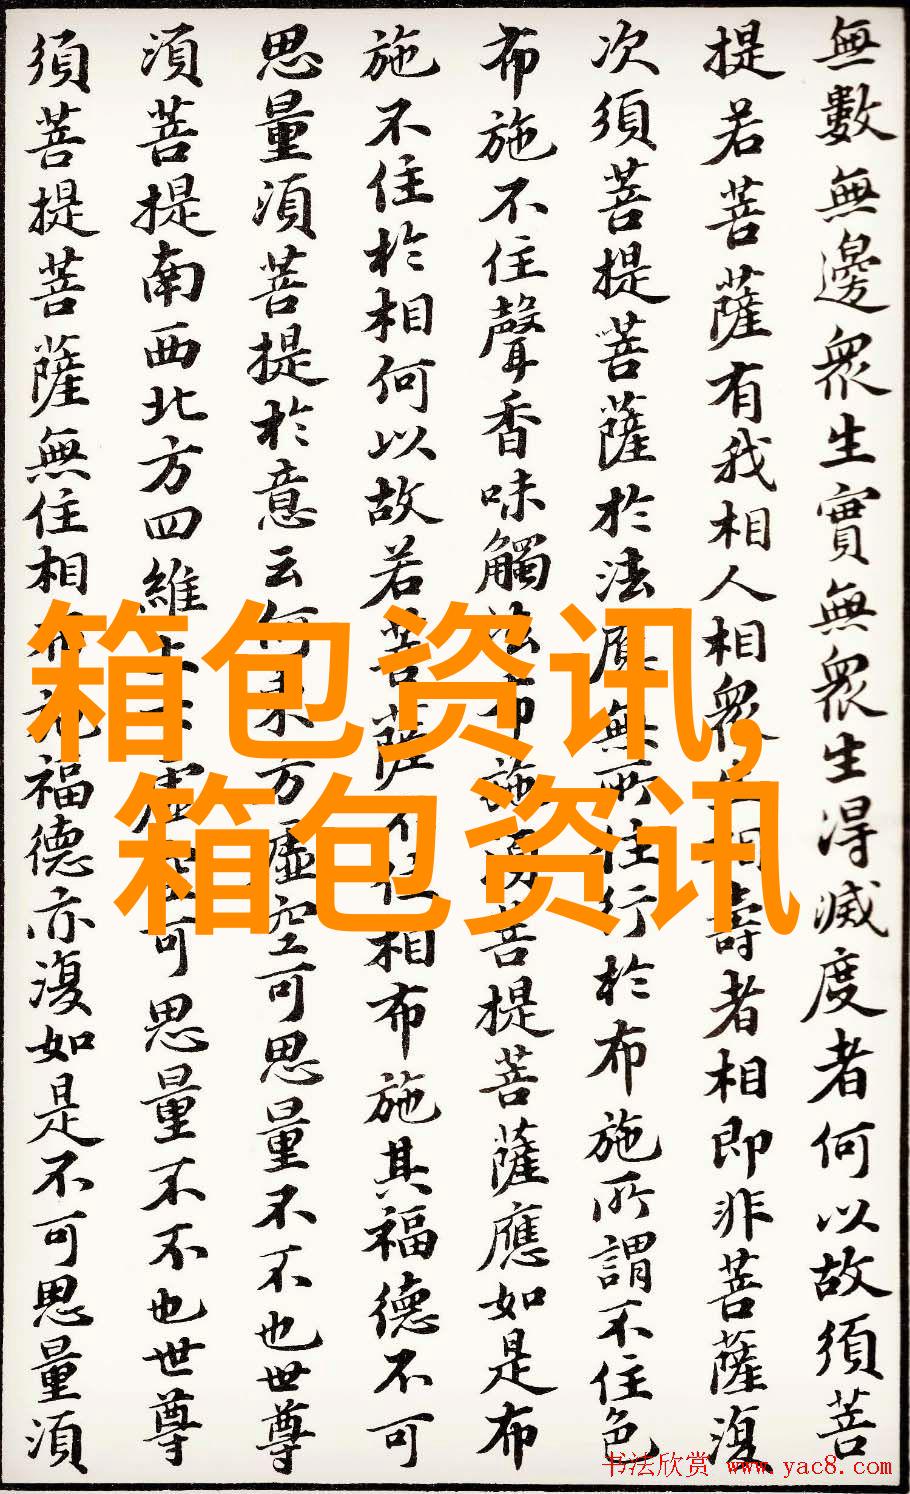 無數無邊眾生實無眾生得滅度者何以故須菩
提若菩薩有我相人相眾生相壽者相即非菩薩復
次須菩提菩薩於法應無所住行於布施所謂不住色
布施不住聲香味觸法布施須菩提菩薩應如是布
施不住於相何以故若菩薩不住相布施其福德不可
思量須菩提於意云何東方虛空可思量不不也世尊
須菩提南西北方四維上下虛空可思量不不也世尊
須菩提菩薩無住相布施福德亦復如是不可思量須
箱包资讯,
箱包资讯
书法欣赏 www.yac8.com